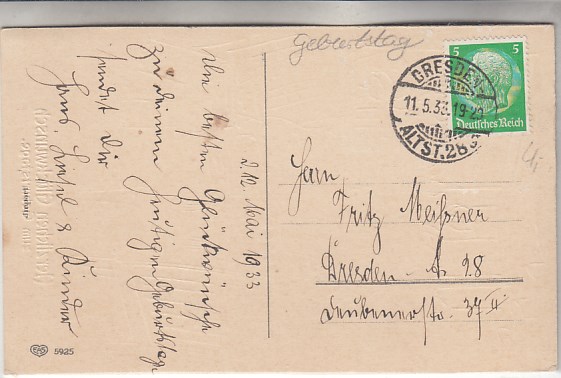 Geburtstag
5 5
Deutsches Reich
DRESDEN
11.5.33.19-20
ALTST. 28
d. 12. Mai 1933
Die besten Glückwünsche
zu deinem heutigen Geburtstag
sendet Dir
Hans, Liesel & Günter
Herrn
Fritz Meißner
Dresden - A 28
Deubenerstr. 37 II
EAS 5925